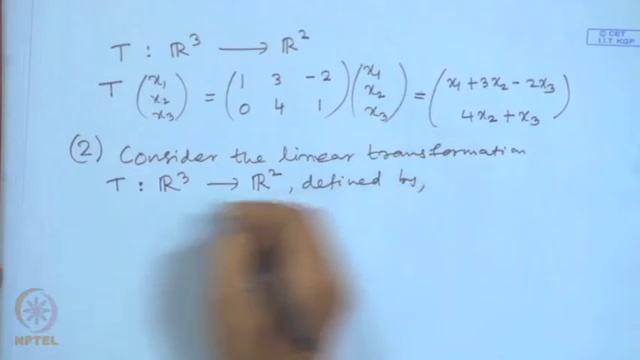 © CET
I.I.T. KGP
T : ℝ³ ⟶ ℝ²
T (x₁ x₂ x₃) = (1 3 -2 0 4 1) (x₁ x₂ x₃) = (x₁ + 3x₂ - 2x₃ 4x₂ + x₃)
(2) Consider the linear transformation
T : ℝ³ ⟶ ℝ², defined by,
NPTEL